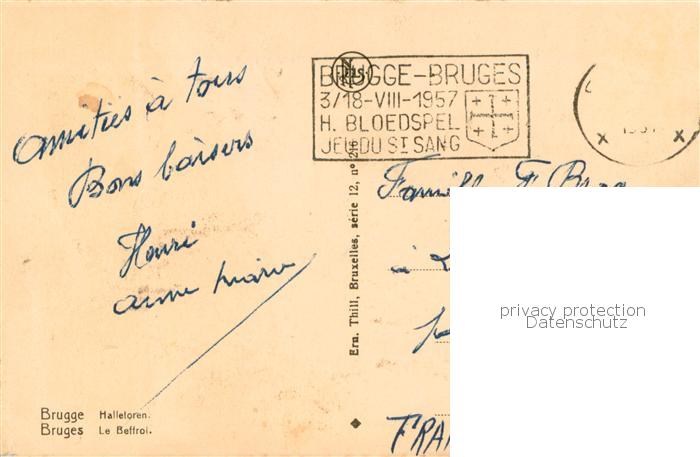 amitiés à tous
Bons baisers
Henri
anne marie
Brugge Halletoren.
Bruges Le Beffroi.
Ern. Thill, Bruxelles, série 12, n° 26
BRUGGE-BRUGES
3/18-VIII-1957
H. BLOEDSPEL
JEU DU ST SANG
Famille F
à
FRA
privacy protection
Datenschutz